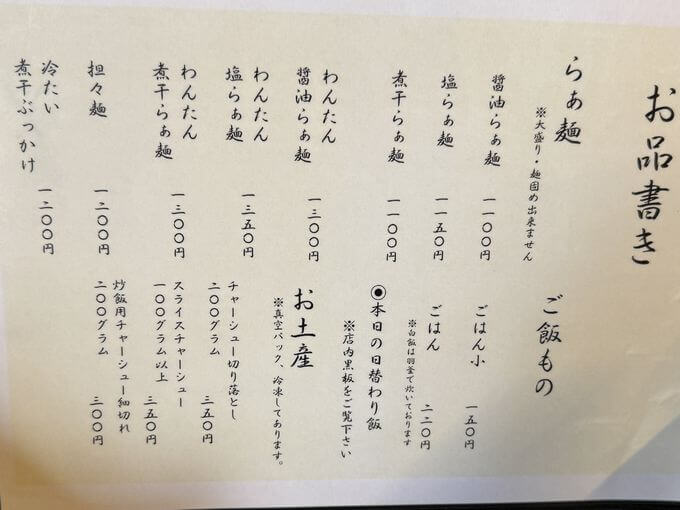 お品書き
らぁ麺
※大盛り・麺固め出来ません
醤油らぁ麺 一一〇〇円
塩らぁ麺 一一五〇円
煮干らぁ麺 一一〇〇円
わんたん
醤油らぁ麺 一三〇〇円
わんたん
塩らぁ麺 一三五〇円
わんたん
煮干らぁ麺 一三〇〇円
担々麺 一二〇〇円
冷たい
煮干ぶっかけ 一二〇〇円
ご飯もの
ごはん小 一五〇円
ごはん 二二〇円
※白飯は羽釜で炊いております
◉本日の日替わり飯
※店内黒板をご覧下さい
お土産
※真空パック、冷凍してあります。
チャーシュー切り落とし
二〇〇グラム 三五〇円
スライスチャーシュー
一〇〇グラム以上 三五〇円
炒飯用チャーシュー細切れ
二〇〇グラム 三〇〇円